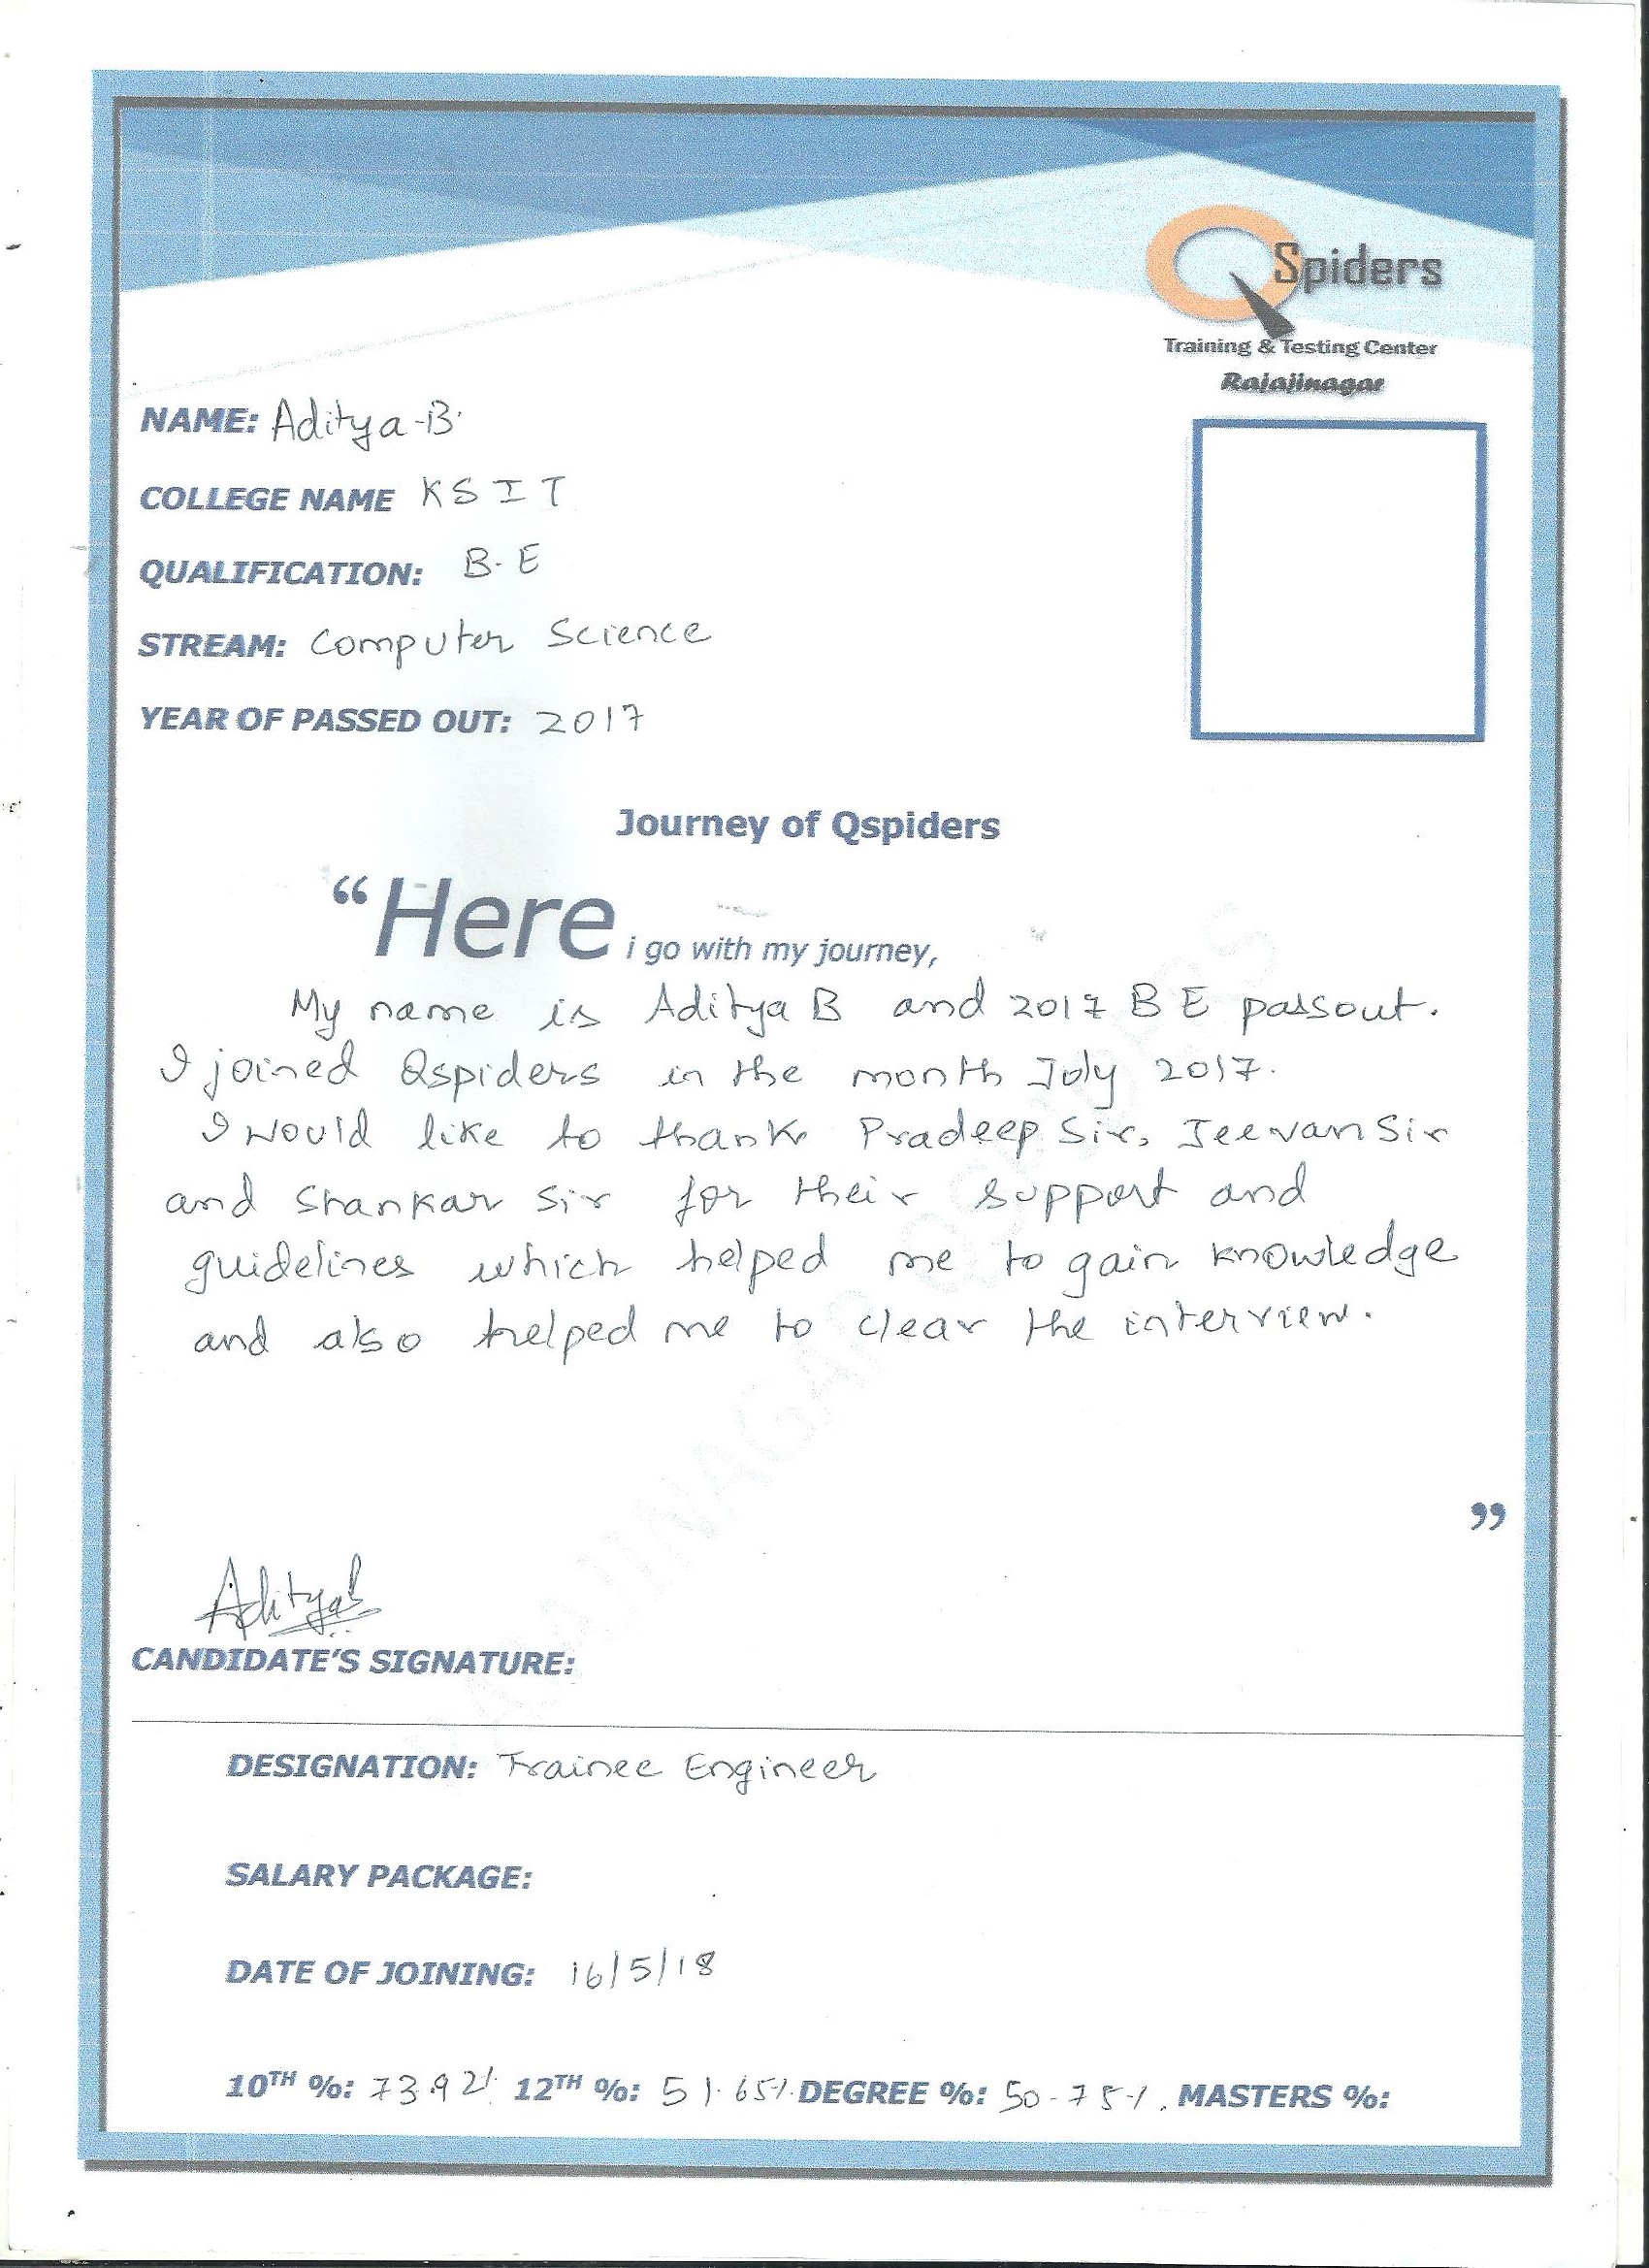 QSpiders
Training & Testing Center
Rajajinagar
NAME: Aditya-B
COLLEGE NAME KSIT
QUALIFICATION: B.E
STREAM: Computer Science
YEAR OF PASSED OUT: 2017
Journey of Qspiders
“Here i go with my journey,
My name is Aditya B and 2017 BE passout.
I joined Qspiders in the month July 2017.
I would like to thank Pradeep Sir, Jeevan Sir
and Shankar Sir for their support and
guidelines which helped me to gain knowledge
and also helped me to clear the interview.
”
AdityaB
CANDIDATE'S SIGNATURE:
DESIGNATION: Trainee Engineer
SALARY PACKAGE:
DATE OF JOINING: 16/5/18
10TH %: 73.92% 12TH %: 51.65% DEGREE %: 50.75%. MASTERS %: